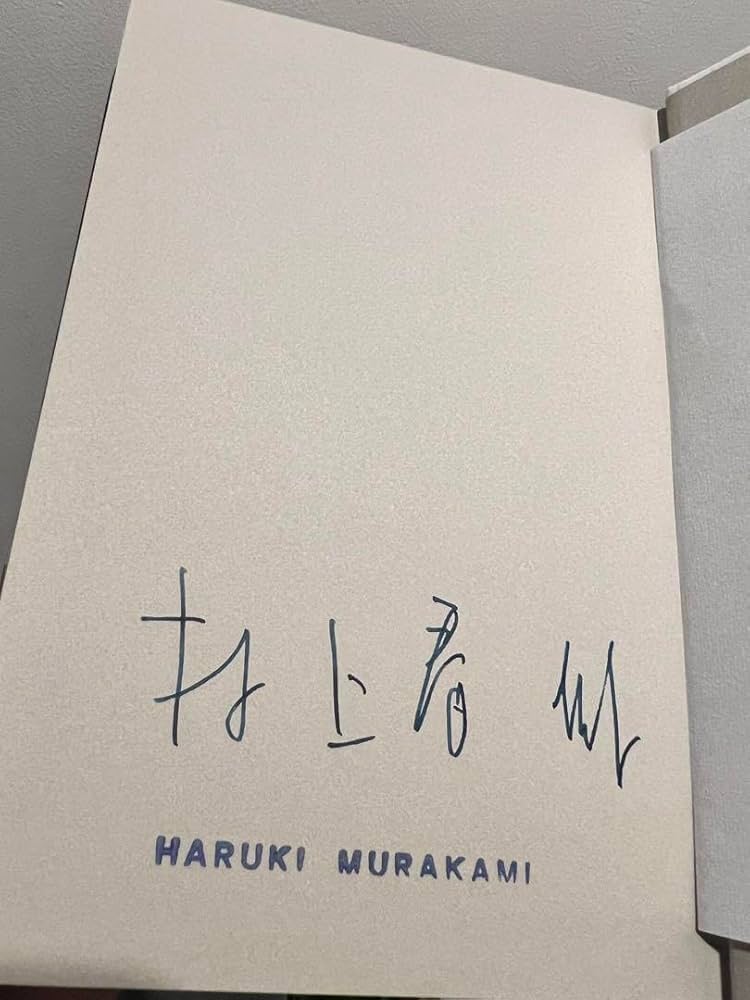 村上春樹
HARUKI MURAKAMI